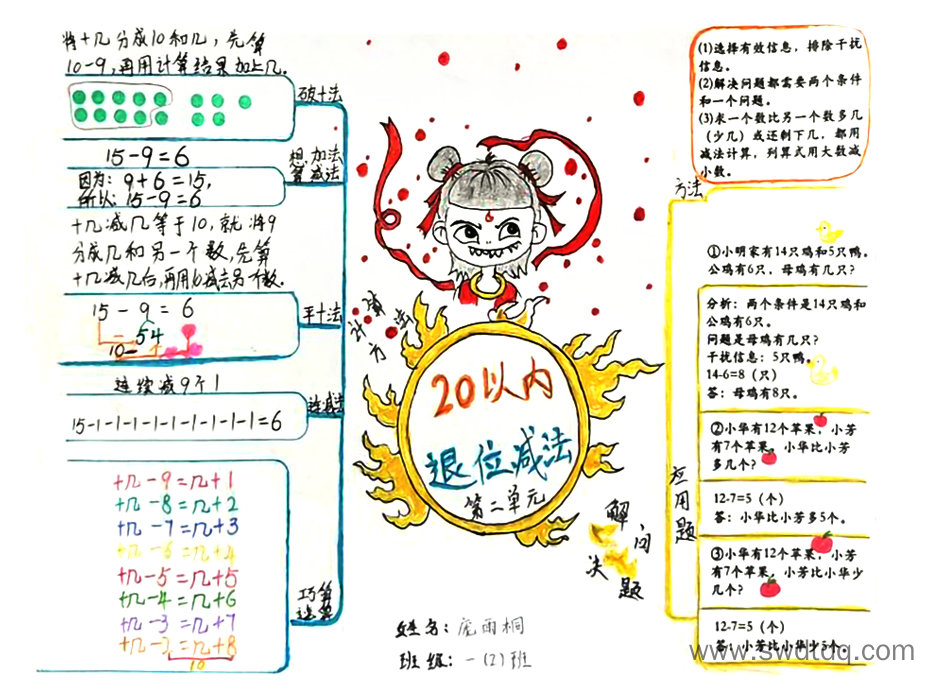 将十几分成10和几，先算
10-9，再用计算结果加上几。
破十法
15-9=6
因为：9+6=15，
所以：15-9=6
想加法
算减法
十几减几等于10，就将9
分成几和另一个数，先算
十几减几后，再用10减去另一个数。
15-9=6
54
10-
平十法
连续减9个1
15-1-1-1-1-1-1-1-1-1=6
连减法
十几-9=几+1
十几-8=几+2
十几-7=几+3
十几-6=几+4
十几-5=几+5
十几-4=几+6
十几-3=几+7
十几-2=几+8
10
巧算
速算
计算
方法
20以内
退位减法
第二单元
解问
决题
姓名：庞雨桐
班级：一(2)班
(1)选择有效信息，排除干扰
信息。
(2)解决问题都需要两个条件
和一个问题。
(3)求一个数比另一个数多几
（少几）或还剩下几，都用
减法计算，列算式用大数减
小数。
方法
①小明家有14只鸡和5只鸭。
公鸡有6只，母鸡有几只？
分析：两个条件是14只鸡和
公鸡有6只。
问题是母鸡有几只？
干扰信息：5只鸭。
14-6=8（只）
答：母鸡有8只。
②小华有12个苹果，小芳
有7个苹果，小华比小芳
多几个？
应用题
12-7=5（个）
答：小华比小芳多5个。
③小华有12个苹果，小芳
有7个苹果，小芳比小华少
几个？
12-7=5（个）
答：小芳比小华少5个。
www.swdtdq.com